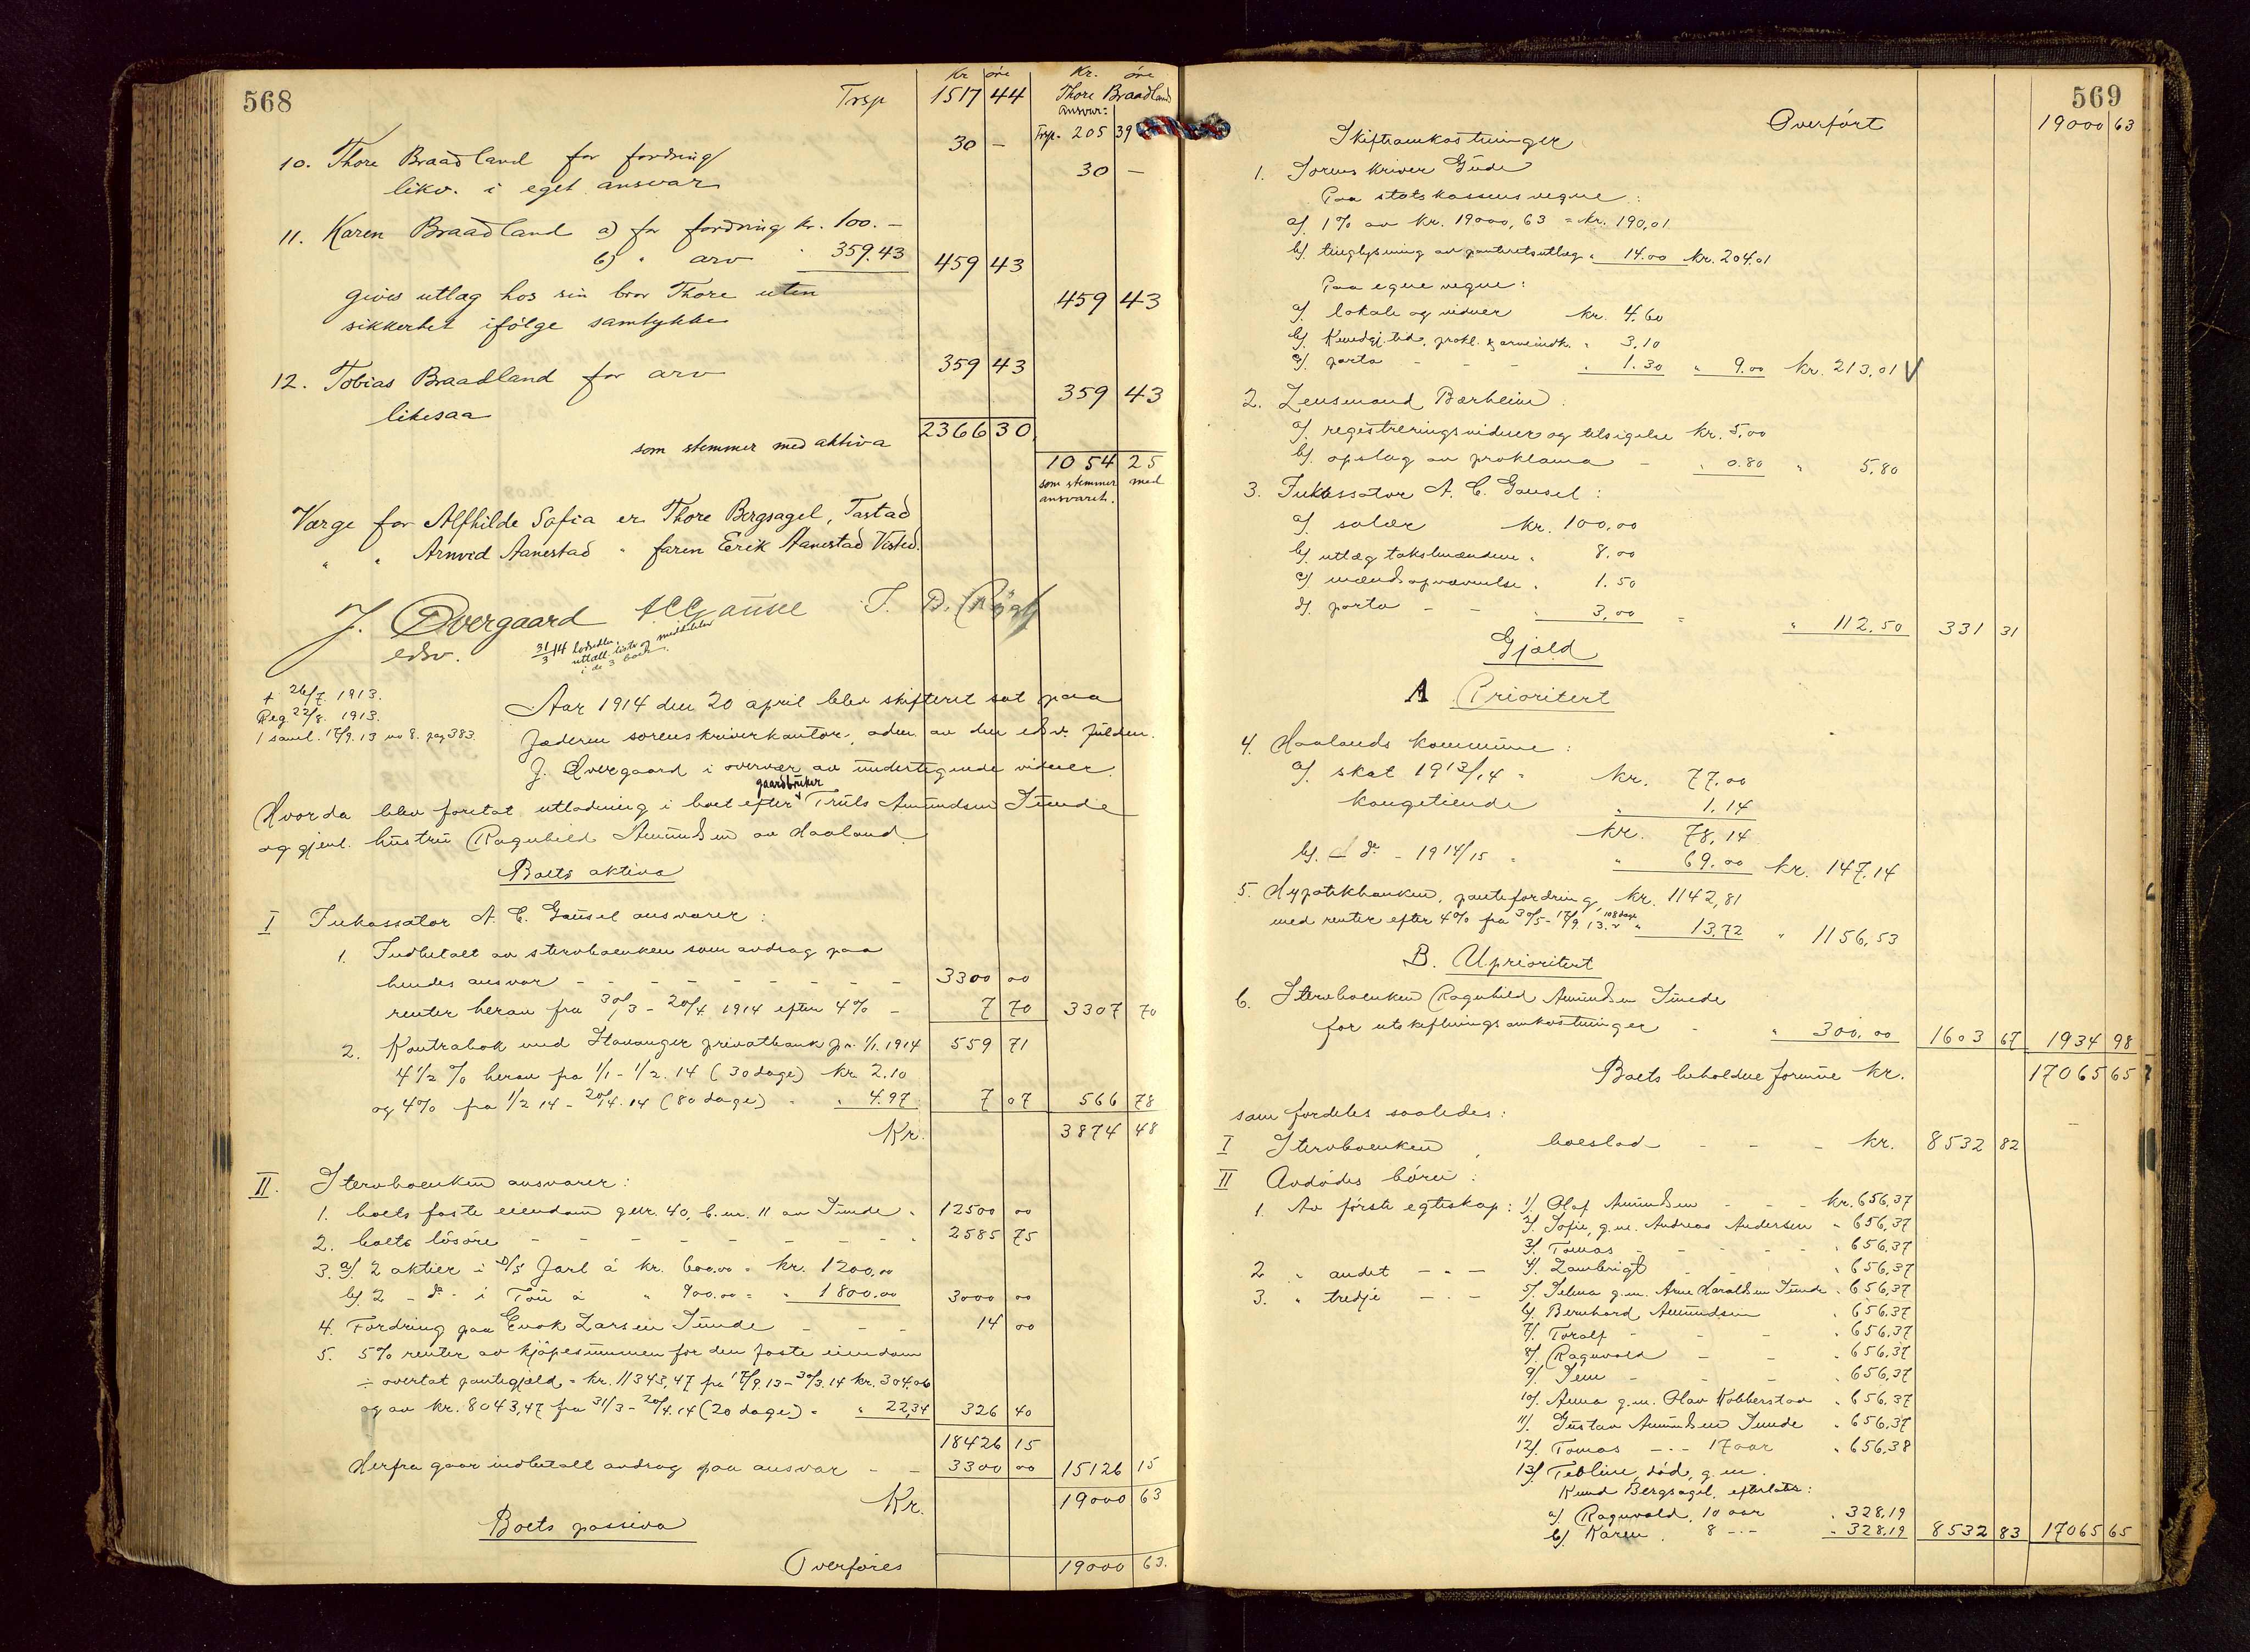 568
Kr øre Kr. øre
Trsp 1517 44 Thore Braadland
Ansvar:
Trsp. 205 39
10. Thore Braadland for fordring 30 -
likv. i eget ansvar 30 -
11. Karen Braadland a) for fordring kr. 100.-
b) " arv " 359.43 459 43
gives utlæg hos sin bror Thore uten 459 43
sikkerhet ifølge samtykke
12. Tobias Braadland for arv 359 43
likesaa 359 43
som stemmer med aktiva 2366 30
1054 25
som stemmer med
ansvaret.
Værge for Alfhilde Sofia er Thore Bergsagel, Tastad
" " Arnvid Aanestad " faren Erik Aanestad Visted.
J. Overgaard A C Gausel T. B.
edsv.
31/3 14 lodsedler,
utlæll. liste og meddelelser
i de 3 boer.
† 26/7 1913.
Reg 22/8. 1913.
1 saml. 17/9.13 no 8. pag 383.
Aar 1914 den 20 april blev skifteret sat paa
Jæderen sorenskriverkontor, adm. av den edsv. fuldm.
J. Overgaard i overvær av undertegnede vidner.
gaardbruker
Hvorda blev foretat utlodning i boet efter Truls Amundsen Tunde
og gjenl. hustru Ragnhild Amundsen av Haaland.
Boets aktiva
I Inkassator A. C. Gausel ansvarer:
1. Indbetalt av stervboenken som avdrag paa
hendes ansvar - - - - - - - - - 3300 00
renter herav fra 30/3 - 20/4 1914 efter 4% - 7 70 3307 70
2. Kontrabok ved Stavanger privatbank pr. 1/1.1914 559 71
4 1/2 % herav fra 1/1 - 1/2. 14 (30 dage) kr 2.10
og 4% fra 1/2 14 - 20/4.14 (80 dage) - " 4.97 7 07 566 78
Kr. 3874 48
II. Stervboenken ansvarer:
1. boets faste eiendom gnr. 40, b.nr. 11 av Tunde " 12500 00
2. boets løsøre - - - - - - - - 2585 75
3. a). 2 aktier i D/S Jarl á kr. 600,00 = kr. 1200,00
b). 2 - do - i Tou á " 900.00 = " 1800.00 3000 00
4. Fordring paa Enok Larsen Tunde - - - 14 00
5. 5% renter av kjøpesummen for den faste eiendom
÷ overtat pantegjæld = kr. 11343,47 fra 17/9.13 - 30/3.14 kr. 304,06
og av kr. 8043,47 fra 31/3 - 20/4.14 (20 dage) = " 22,34 326 40
18426 15
Herfra gaar indbetalt avdrag paa ansvar - - 3300 00 15126 15
Kr. 19000 63
Boets passiva
Overføres 19000 63.
569
Overført 19000 63
Skifteomkostninger
1. Sorenskriver Gude
Paa statskassens vegne:
a). 1% av kr. 19000,63 = kr. 190,01
b). tinglysning av panteretsutlæg " 14.00 kr. 204.01
Paa egne vegne:
a). lokale og vidner kr. 4.60
b). Kundgj. tid. prokl. & arveindk. " 3.10
c). porto - - - " 1.30 " 9.00 kr. 213,01 V
2. Lensmand Bærheim:
a). registreringsvidner og tilsigelse kr. 5.00
b). opslag av proklama - " 0.80 " 5.80
3. Inkassator A. C. Gausel:
a). salær kr. 100,00
b). utlæg takstmændene " 8.00
c). mænds opnævnelse " 1.50
d). porto - - " 3,00 " 112.50 331 31
Gjæld
A. Prioritert
4. Haalands kommune:
a). skat 1913/14 = kr. 77.00
kongetiende " 1.14
kr. 78,14
b). - do - 1914/15 " " 69.00 kr. 147.14
5. Hypotekbanken, pantefordring, kr. 1142,81
med renter efter 4% fra 30/5 - 17/9.13. 108 dage " 13.72 " 1156,53
B. Uprioritert
6. Stervboenken Ragnhild Amundsen Tunde
for utskiftningsomkostninger - " 300.00 1603 67 1934 98
Boets beholdne formue kr. 17065 65
som fordeles saaledes:
I Stervboenken, boeslod - - - kr. 8532 82
II Avdødes børn:
1. Av første egteskap: 1). Olaf Amundsen - - kr. 656,37
2). Sofie, g.m. Andreas Andersen " 656,37
3). Tomas - - - - " 656.37
2 " andet - " - 4). Lambrigt - - " 656,37
3. " tredje - " - 5). Selma g.m. Arne Haraldsen Tunde " 656,37
6). Bernhard Amundsen " 656.37
7). Toralf - - - " 656.37
8). Ragnvald - - " 656.37
9). Jenn - - " 656.37
10). Anna g.m. Olav Kobberstad " 656.37
11). Gustav Amundsen Tunde " 656.37
12). Tomas - " - 17 aar " 656,38
13). Tobline, død, g.m.
Knud Bergsagel, efterlatt:
a). Ragnvald, 10 aar " 328,19
b). Karen. 8 - " - " 328,19 8532 83 17065 65